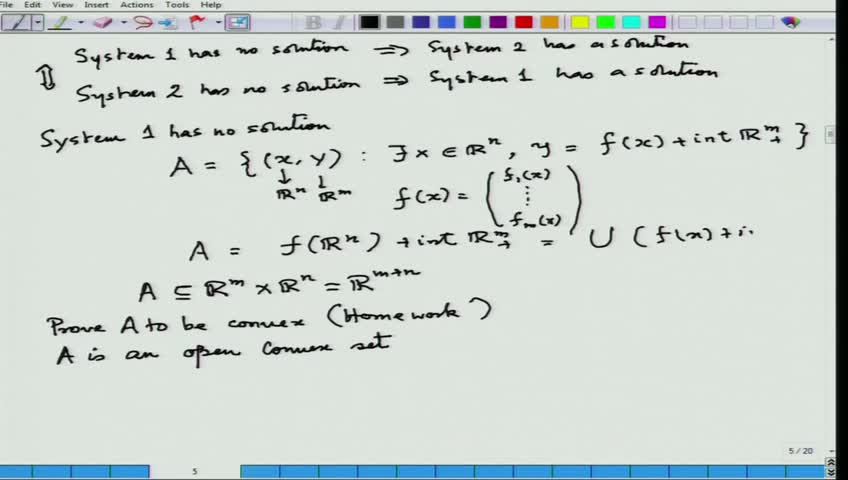 File Edit View Insert Actions Tools Help
System 1 has no solution ⟹ System 2 has a solution
⇕
System 2 has no solution ⟹ System 1 has a solution
System 1 has no solution
A = {(x, y) : ∃ x ∈ ℝⁿ, y = f(x) + int ℝᵐ₊}
↓ ↓
ℝⁿ ℝᵐ
f(x) = (f₁(x) ⋮ fₘ(x))
A = f(ℝⁿ) + int ℝᵐ₊ = ∪ (f(x) + i.
A ⊆ ℝᵐ × ℝⁿ = ℝᵐ⁺ⁿ
Prove A to be convex (Homework)
A is an open convex set
5 / 20
5